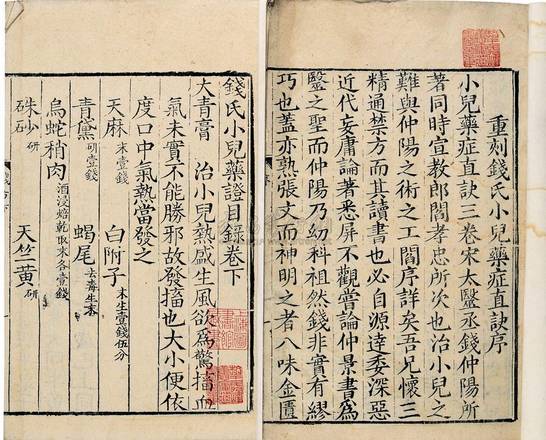 重刻錢氏小兒藥症直訣序
小兒藥症直訣三卷宋太醫丞錢仲陽所
著同時宣教郎閻孝忠所次也治小兒之
難與仲陽之術之工閻序詳矣吾兄懷三
精通禁方而其讀書也必自源逹委深惡
近代妄庸論著悉屏不觀嘗論仲景書爲
毉之聖而仲陽乃幼科祖然錢非實有繆
巧也蓋亦熟張文而神明之者八味金匱
錢氏小兒藥證目錄卷下
大青膏 治小兒熱盛生風欲爲驚搐血
氣未實不能勝邪故發搐也大小便依
度口中氣熱當發之
天麻 末壹錢 白附子 末生壹錢伍分
青黛 研壹錢 蝎尾 去毒生末
烏蛇稍肉 酒浸焙乾取末各壹錢
硃砂 研 天竺黃 研